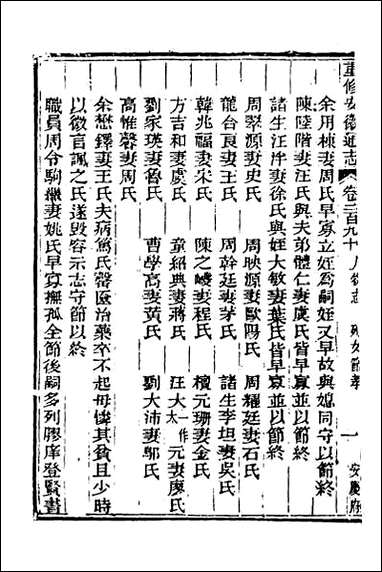 重修安徽通志 卷二百九十 人物志 列女節孝 一 安慶府
余用棟妻周氏早寡立姪為嗣姪又早故與媳同守以節終
陳陸階妻汪氏與夫弟體仁妻虞氏皆早寡並以節終
諸生汪泮妻徐氏與姪大敏妻葉氏皆早寡並以節終
周翠源妻史氏 周映源妻歐陽氏 周耀廷妻石氏
龍台良妻王氏 周幹廷妻茅氏 諸生李坦妻吳氏
韓兆福妻朱氏 陳之嶙妻程氏 檀元珊妻金氏
方吉和妻虞氏 章紹典妻蔣氏 汪大一作太元妻廖氏
劉家瑛妻魯氏 曹學高妻黃氏 劉大沛妻鄔氏
高惟馨妻周氏
余懋鐸妻王氏夫病篤氏罄匳治藥卒不起母憐其貧且少時
以微言諷之氏遂毀容示志守節以終
職員周令駒繼妻姚氏早寡撫孤全節後嗣多列膠庠登賢書